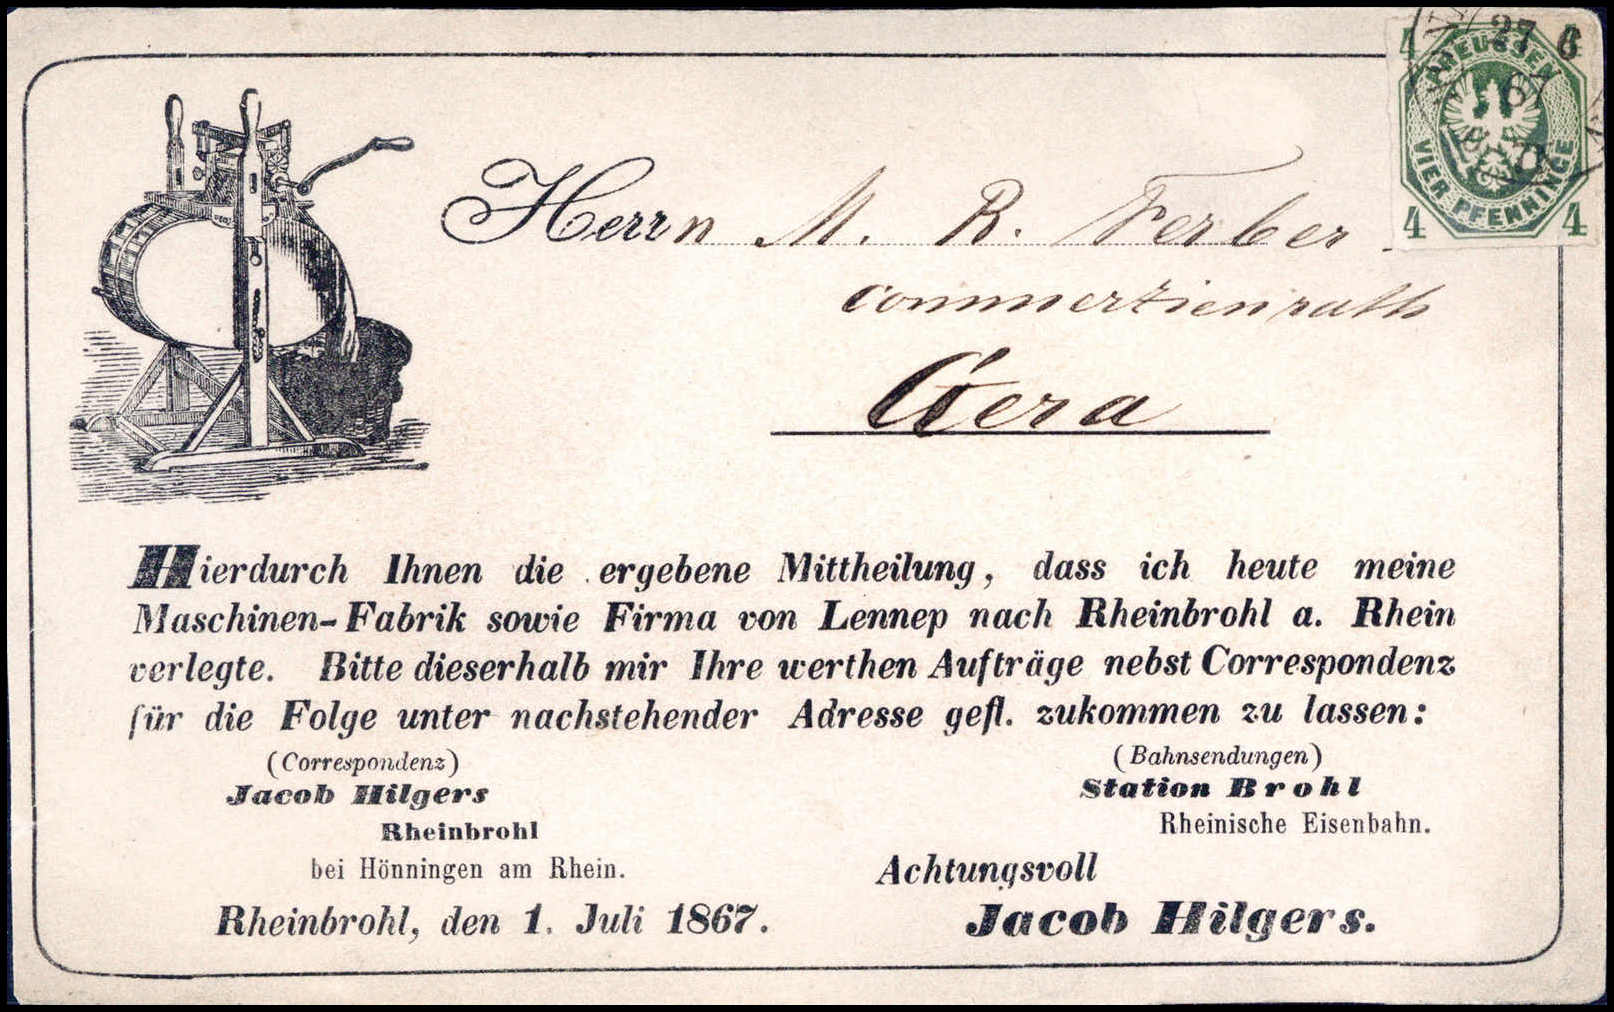 4 PREUSSEN 4
27 6
67
VIER PFENNINGE
4 4
Herrn M. R. Ferber
Commerzienrath
Gera
Hierdurch Ihnen die ergebene Mittheilung, dass ich heute meine
Maschinen-Fabrik sowie Firma von Lennep nach Rheinbrohl a. Rhein
verlegte. Bitte dieserhalb mir Ihre werthen Aufträge nebst Correspondenz
für die Folge unter nachstehender Adresse gefl. zukommen zu lassen:
(Correspondenz)
Jacob Hilgers
Rheinbrohl
bei Hönningen am Rhein.
(Bahnsendungen)
Station Brohl
Rheinische Eisenbahn.
Achtungsvoll
Rheinbrohl, den 1. Juli 1867.
Jacob Hilgers.